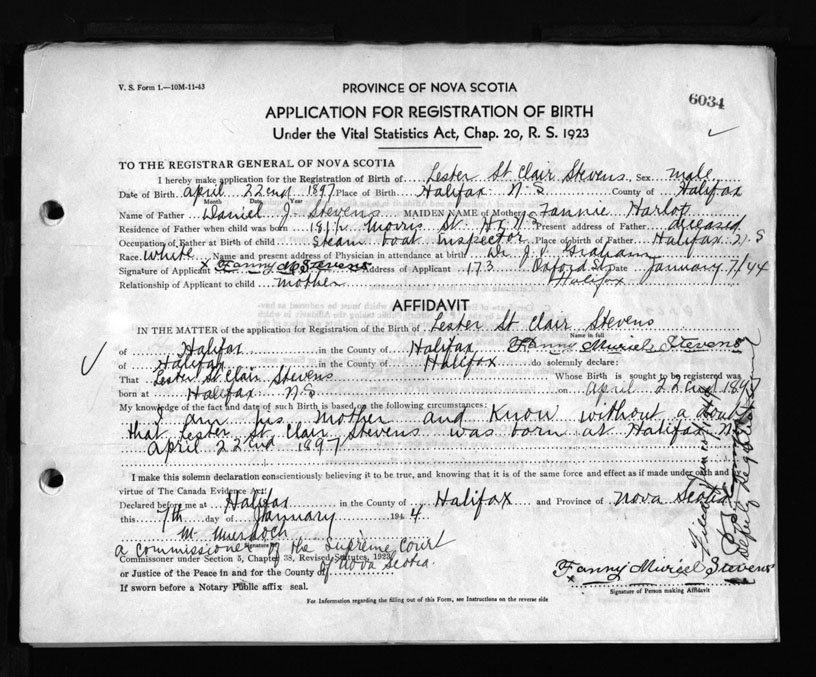 V. S. Form 1.—10M-11-43
PROVINCE OF NOVA SCOTIA
6034
APPLICATION FOR REGISTRATION OF BIRTH
Under the Vital Statistics Act, Chap. 20, R. S. 1923
TO THE REGISTRAR GENERAL OF NOVA SCOTIA
I hereby make application for the Registration of Birth of Lester St Clair Stevens Sex male
Date of Birth april 22end 1897 Place of Birth Halifax N. S County of Halifax
Month Date Year
Name of Father Daniel J. Stevens MAIDEN NAME of Mother Fannie
Residence of Father when child was born Morris St Present address of Father deceased
Occupation of Father at Birth of child Steam boat Inspector Place of Birth of Father Halifax N. S
Race White Name and present address of Physician in attendance at birth Dr J. Graham
Signature of Applicant x Fanny M Stevens Address of Applicant 173 Oxford St Date January 7/44
Relationship of Applicant to child mother Halifax
AFFIDAVIT
IN THE MATTER of the application for Registration of the Birth of Lester St Clair Stevens
Name in full
of Halifax in the County of Halifax Fanny Muriel Stevens
of Halifax in the County of Halifax do solemnly declare:
That Lester St Clair Stevens Whose Birth is sought to be registered was
born at Halifax N. S on april 22end 1897
My knowledge of the fact and date of such Birth is based on the following circumstances:
I am his mother and Know without a dout
that Lester St Clair Stevens was born at Halifax N.
april 22end 1897
I make this solemn declaration conscientiously believing it to be true, and knowing that it is of the same force and effect as if made under oath and
virtue of The Canada Evidence Act.
Declared before me at Halifax in the County of Halifax and Province of Nova Scotia
this 7th day of January 1944.
M. Murdoch
Signature of
a Commissioner of the Supreme Court
Commissioner under Section 5, Chapter 38, Revised Statutes, 1923
of Nova Scotia.
or Justice of the Peace in and for the County of
If sworn before a Notary Public affix seal.
Fanny Muriel Stevens
x
Signature of Person making Affidavit
For Information regarding the filling out of this Form, see Instructions on the reverse side
Deputy Registrar